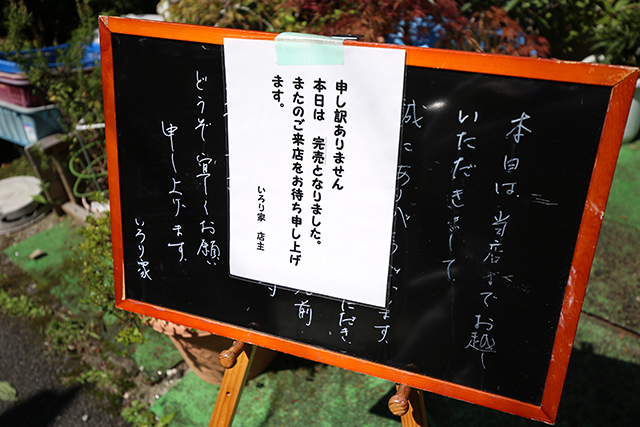 本日は、当店までお越し
いただきまして
誠にありがとうございます。
申し訳ありません
本日は 完売となりました。
またのご来店をお待ち申し上げ
ます。
いろり家 店主
前
どうぞ宜しくお願い
申し上げます。
いろり家